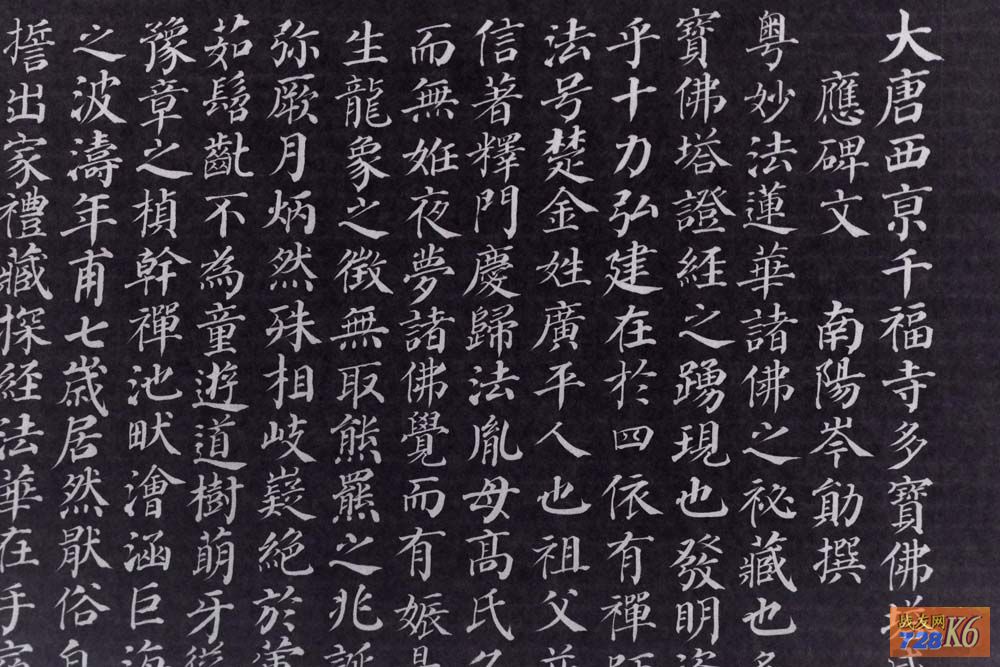 大唐西亰千福寺多寶佛塔
應碑文 南陽岑勛撰
粵妙法蓮華諸佛之祕藏也多
寶佛塔證經之踴現也發明資
乎十力弘建在於四依有禪師
法号楚金姓廣平人也祖父並
信著釋門慶歸法胤母髙氏久
而無姙夜夢諸佛覺而有娠是
生龍象之徵無取熊羆之兆誕
弥厥月炳然殊相岐嶷絕於葷
茹髫齔不為童遊道樹萌牙聳
豫章之楨幹禪池畎澮涵巨海
之波濤年甫七歲居然厭俗自
誓出家禮藏探經法華在手宿
战友网
728
K6